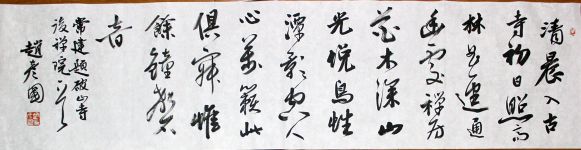 清晨入古
寺初日照高
林曲逕通
幽處禪房
花木深山
光悅鳥性
潭影空人
心萬籟此
俱寂惟
餘鐘磬
音
常建題破山寺
後禪院
趙彥國